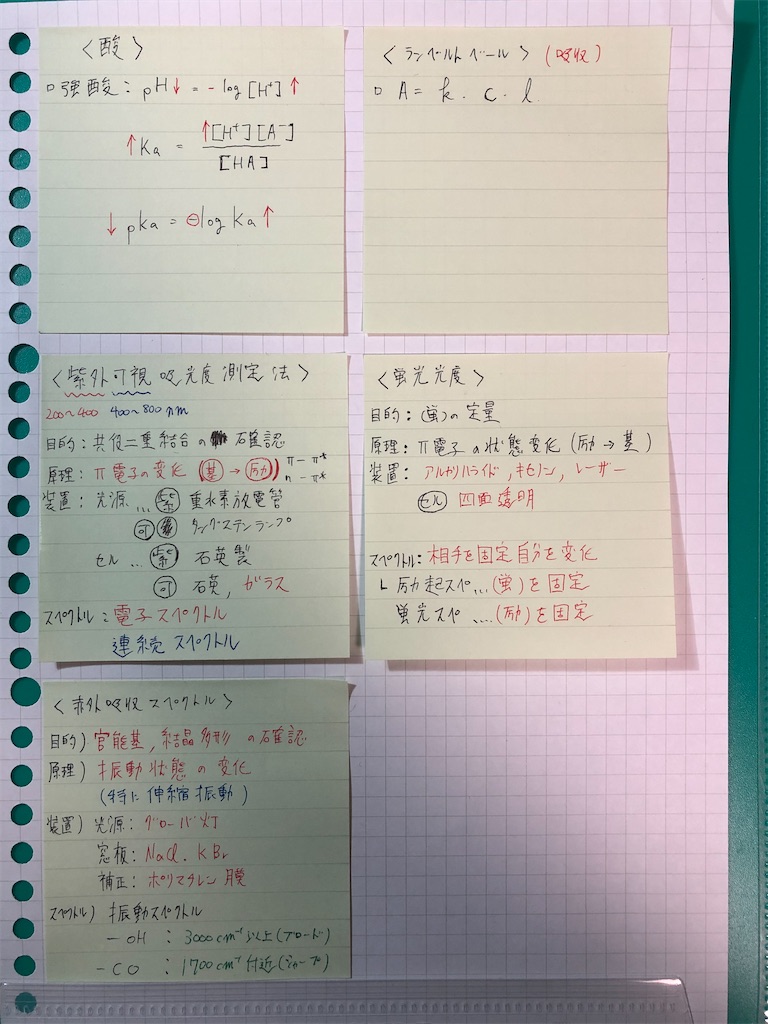 〈酸〉
□強酸: pH↓ = -log[H⁺]↑
↑Ka = ↑[H⁺][A⁻] / [HA]
↓pKa = ⊖log Ka↑
〈ランベルトベール〉(吸収)
□ A = k. c. l.
〈紫外可視吸光度測定法〉
200~400 400~800nm
目的: 共役二重結合の確認
原理: π電子の変化 (基→励) π-π* n-π*
装置: 光源…紫 重水素放電管
可 タングステンランプ
セル…紫 石英製
可 石英, ガラス
スペクトル: 電子スペクトル
連続スペクトル
〈蛍光光度〉
目的: (蛍)の定量
原理: π電子の状態変化 (励→基)
装置: アルカリハライド, キセノン, レーザー
セル 四面透明
スペクトル: 相手を固定自分を変化
└ 励起スペ…(蛍)を固定
蛍光スペ…(励)を固定
〈赤外吸収スペクトル〉
目的) 官能基, 結晶多形の確認
原理) 振動状態の変化
(特に伸縮振動)
装置) 光源: グローバ灯
窓板: NaCl. KBr
補正: ポリスチレン膜
スペクトル) 振動スペクトル
-OH : 3000cm⁻¹以上(ブロード)
-CO : 1700cm⁻¹付近(シャープ)